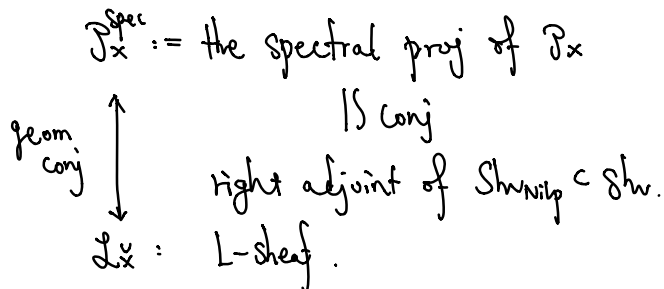 𝒫ₓ^spec := the spectral proj of 𝒫ₓ
geom conj
IS conj
right adjoint of Shv_Nilp ⊂ Shv.
ℒ_X̌ : L-sheaf.